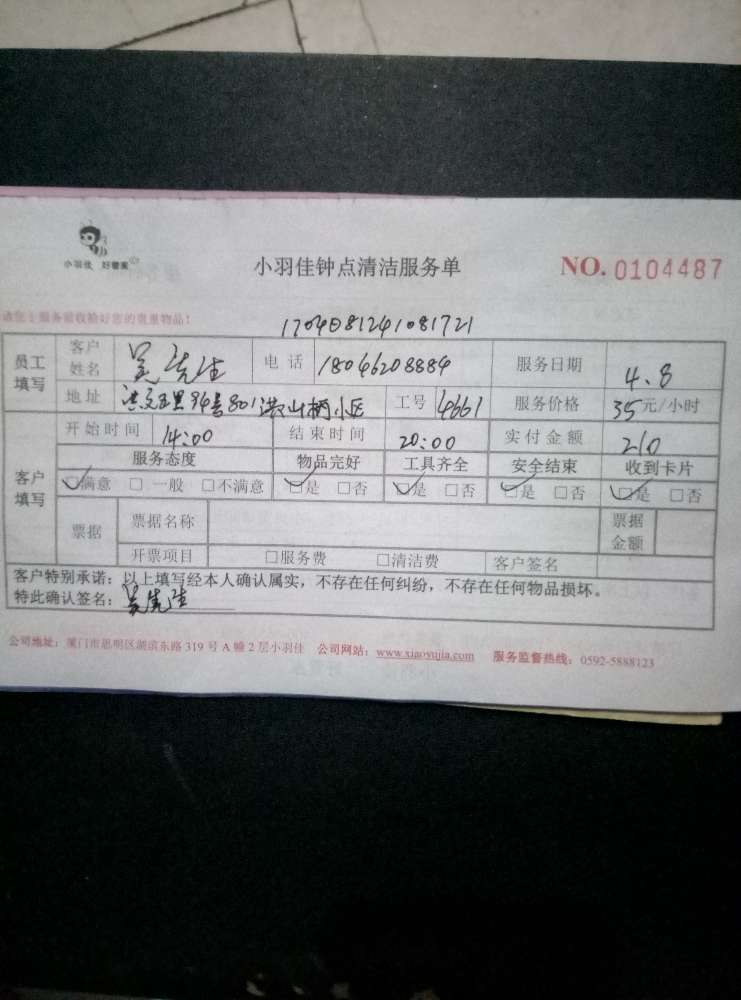 小羽佳 好管家
小羽佳钟点清洁服务单
NO. 0104487
请您在服务前收捡好您的贵重物品！
1704081241081721
员工填写 客户姓名 吴先生 电话 18046208884 服务日期 4.8
地址 洪文五里94号801 小区 工号 4661 服务价格 35元/小时
开始时间 14:00 结束时间 20:00 实付金额 210
客户填写 服务态度 物品完好 工具齐全 安全结束 收到卡片
☑满意 □一般 □不满意 ☑是 □否 ☑是 □否 ☑是 □否 ☑是 □否
票据 票据名称 票据金额
开票项目 □服务费 □清洁费 客户签名
客户特别承诺：以上填写经本人确认属实，不存在任何纠纷，不存在任何物品损坏。
特此确认签名：吴先生
公司地址：厦门市思明区湖滨东路 319 号 A 幢 2 层小羽佳 公司网站：www.xiaoyujia.com 服务监督热线：0592-5888123